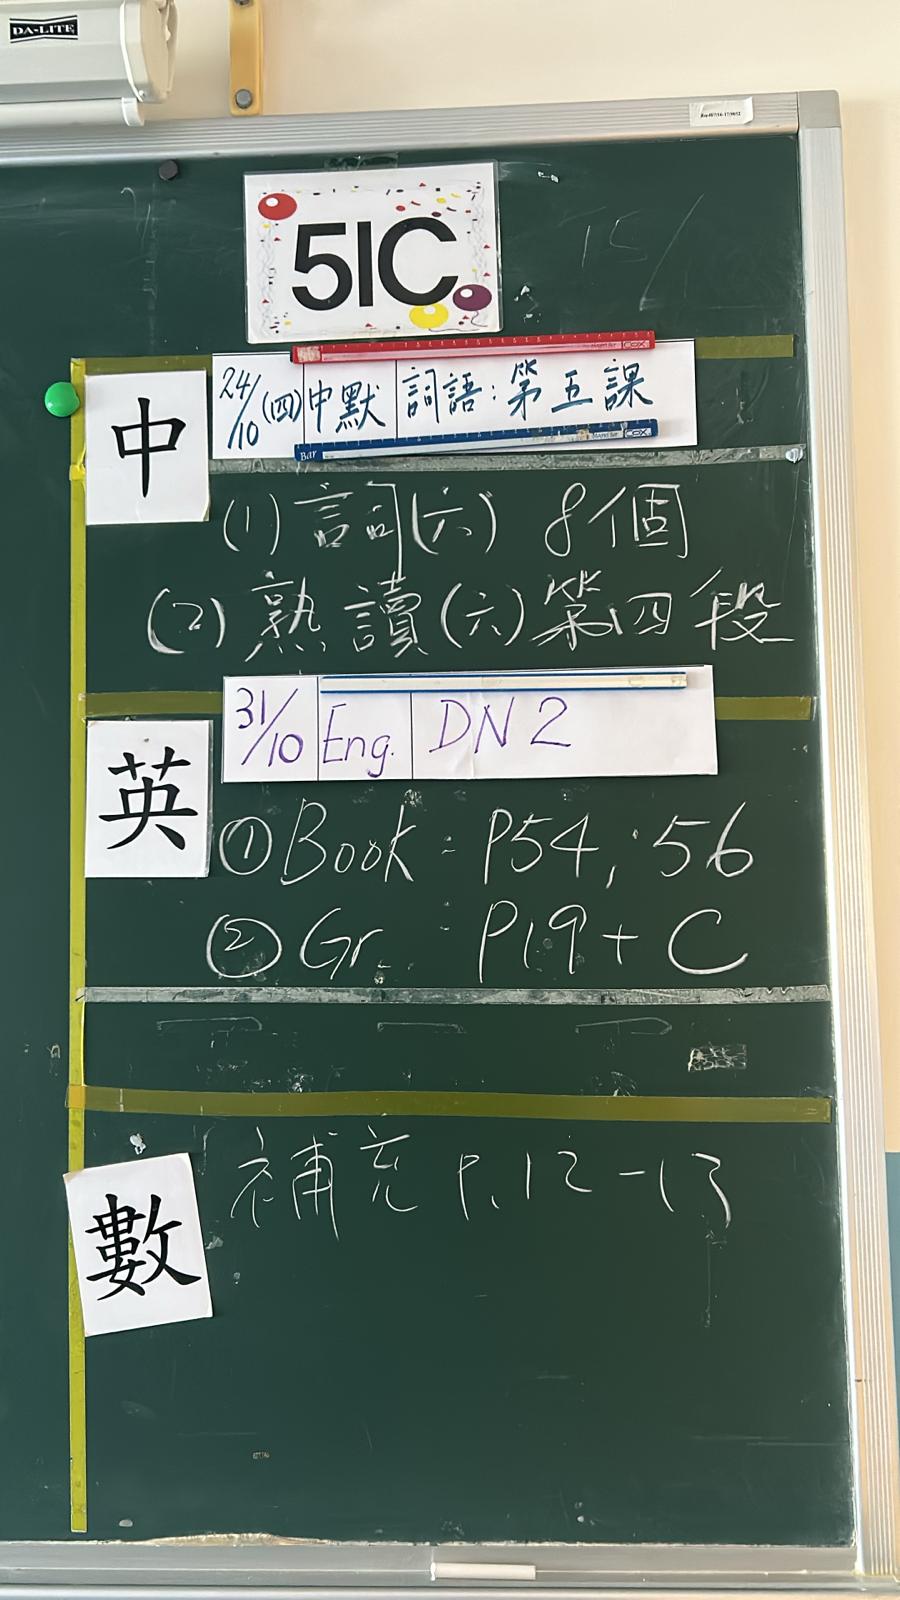 DA-LITE
51C
15/
中
24/10 (四) 中默 詞語：第五課
(1) 詞(六) 8個
(2) 熟讀(六)第四段
英
31/10 Eng. DN 2
① Book : P54, 56
② Gr : P19 + C
數
補充 P.12-13